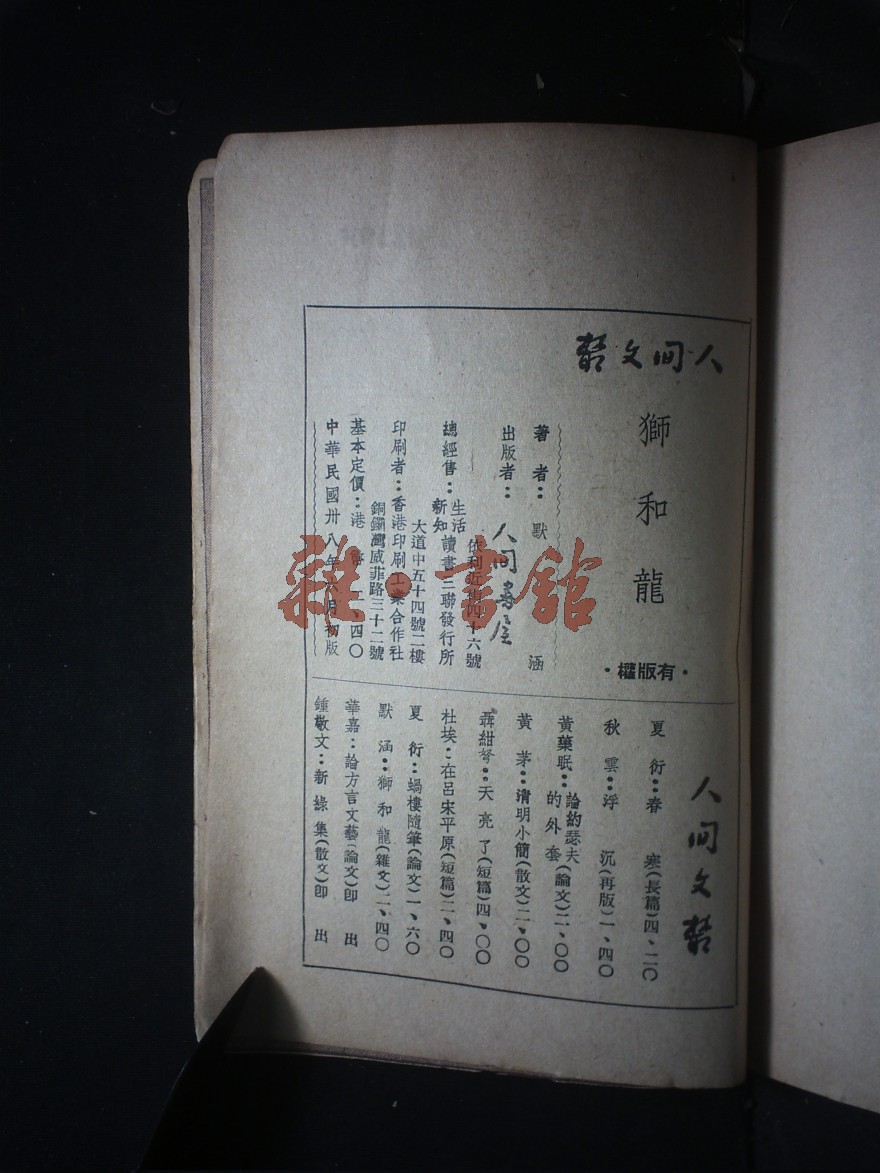 人间文丛
獅和龍
·有版權·
著者：默涵
出版者：人间書屋
依利近街四十六號
總經售：生活
新知
讀書三聯發行所
大道中五十四號二樓
印刷者：香港印刷工業合作社
銅鑼灣威菲路三十二號
基本定價：港幣二、四〇
中華民國卅八年 月初版
人间文丛
夏衍：春寒(長篇)四、二〇
秋雲：浮沉(再版)一、四〇
黃葉眠：論約瑟夫
的外套(論文)二、〇〇
黃茅：清明小簡(散文)二、〇〇
聶紺弩：天亮了(短篇)四、〇〇
杜埃：在呂宋平原(短篇)二、四〇
夏衍：蝸樓隨筆(論文)一、六〇
默涵：獅和龍(雜文)二、四〇
華嘉：論方言文藝(論文)即出
鍾敬文：新綠集(散文)即出
雜·書館